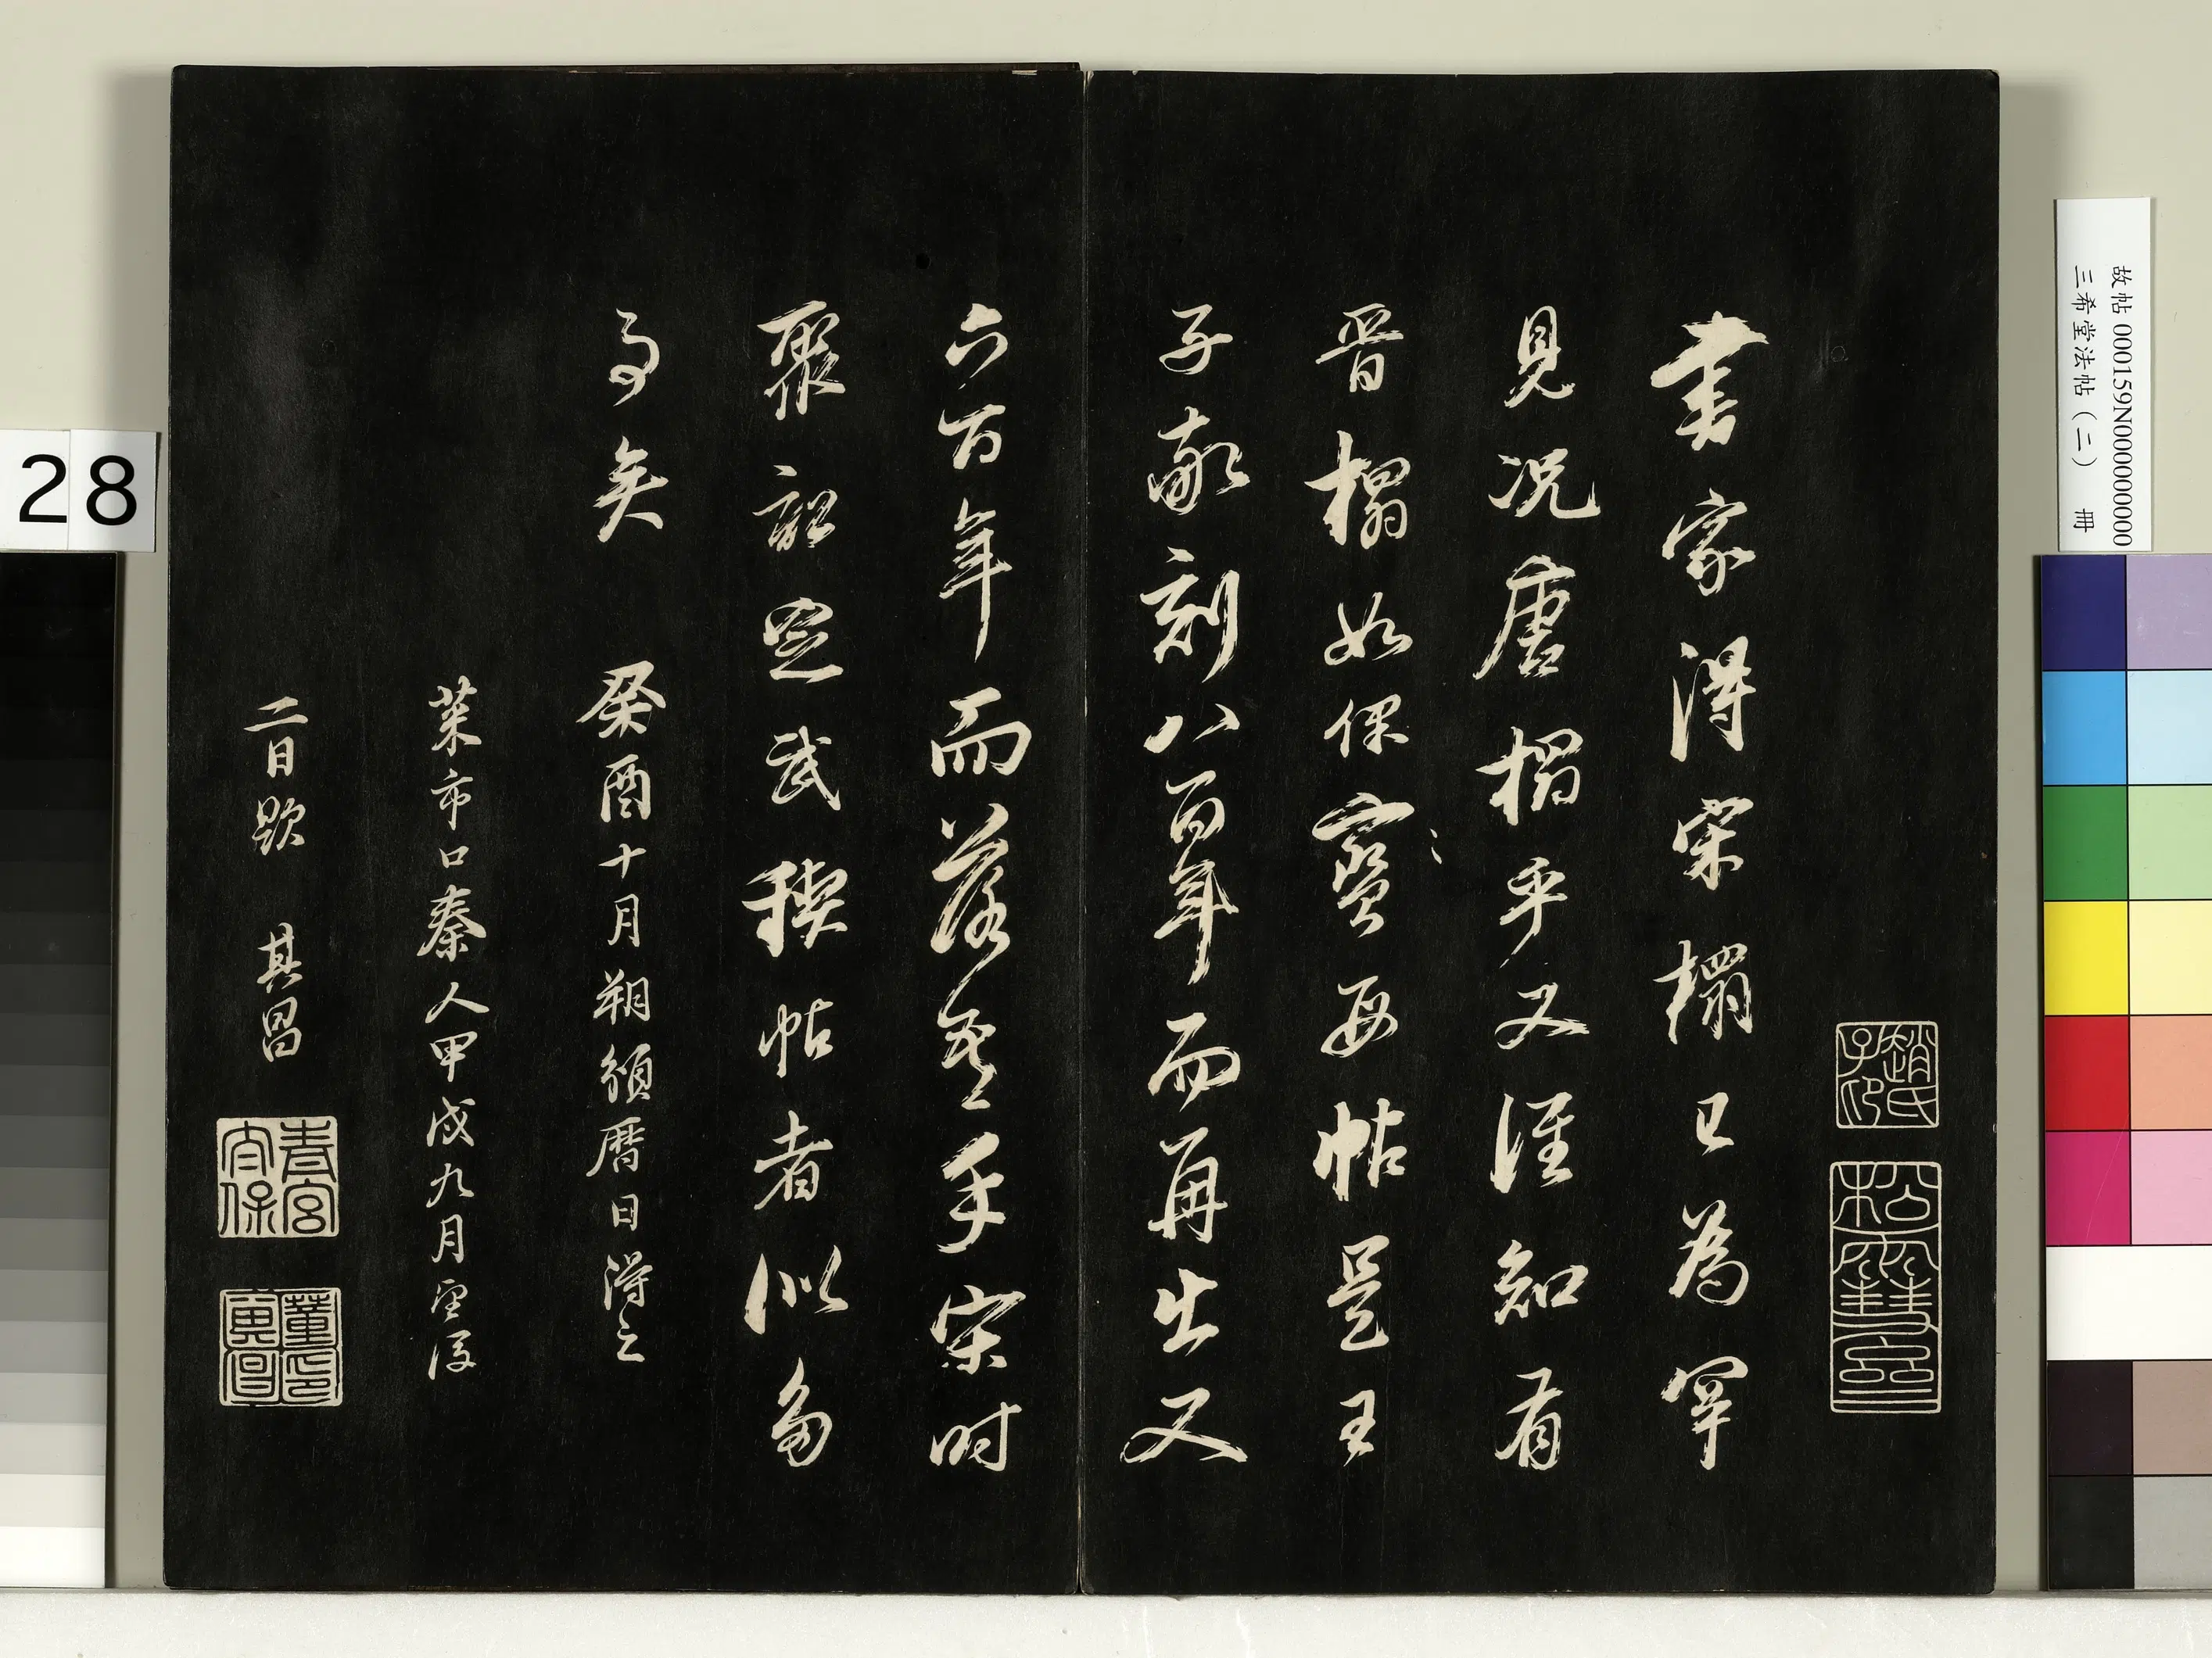 趙氏子印
松雪齋
書家得宋榻已為罕
見况唐榻乎又誰知有
晉榻如保寶母帖是王
子敬刻八百年而再出又
六百年而落吾手宋時
聚訟定武稧帖者似多
事矣 癸酉十月朔頒曆日得之
菜市口秦人甲戌九月望後
二日題 其昌
青宮太保
故帖 000159N000000000
三希堂法帖(二) 冊
28